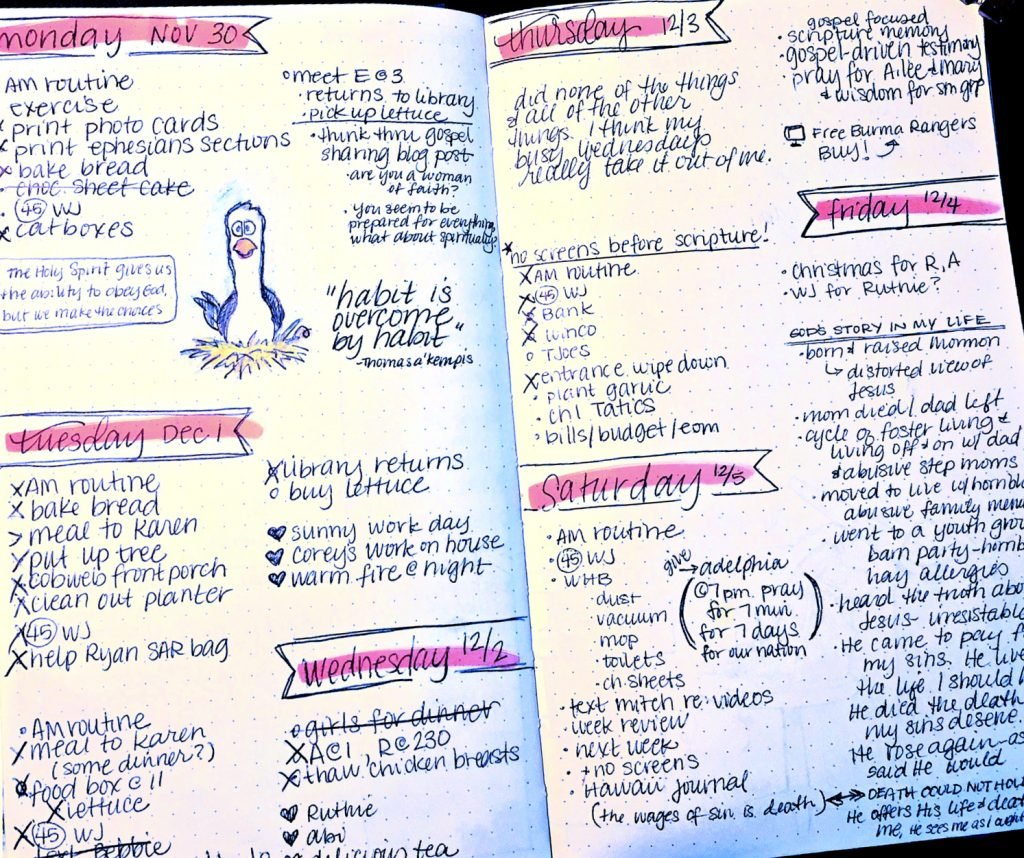 monday NOV 30
AM routine
exercise
x print photo cards
x print ephesians sections
x bake bread
choc sheet cake
• 45 WJ
x catboxes
The Holy Spirit gives us
the ability to obey God,
but we make the choices
o meet E @ 3
• returns to library
• pick up lettuce
• think thru gospel
sharing blog post
- are you a woman
of faith?
• you seem to be
prepared for everything
what about spiritually?
"habit is
overcome
by habit"
-Thomas a'kempis
tuesday DEC 1
x AM routine
x bake bread
> meal to karen
x put up tree
x cobweb front porch
x clean out planter
x 45 WJ
x help Ryan SAR bag
x library returns
o buy lettuce
♥ sunny work day
♥ corey's work on house
♥ warm fire @ night
wednesday 12/2
o AM routine
x meal to karen
(some dinner?)
food box @ 11
x lettuce
x 45 WJ
text Debbie
o girls for dinner
x A@1, R@230
x thaw chicken breasts
♥ Ruthie
♥ abi
delicious tea
thursday 12/3
did none of the things
& all of the other
things. I think my
busy wednesdays
really take it out of me.
* no screens before scripture!
x AM routine
x 45 WJ
x Bank
x winco
o TJoes
x entrance wipe down
• plant garlic
• ch 1 Tatics
• bills/budget/eom
gospel focused
• scripture memory
• gospel-driven testimony
• pray for Ailee & Mary
& wisdom for sm grp
Free Burma Rangers
Buy!
friday 12/4
• christmas for R, A
• WJ for Ruthie?
GOD'S STORY IN MY LIFE
• born & raised mormon
↳ distorted view of
Jesus
• mom died / dad left
• cycle of foster living &
living off & on w/ dad
& abusive step moms
• moved to live w/
abusive family
• went to a youth
barn party-
hay allergies
• heard the truth
Jesus- irresistable
• He came to pay
my sins. He
the life I should
He died the death
my sins deserve.
He rose again-as
said He would
DEATH COULD NOT
He offers His life &
me, He sees me as I
saturday 12/5
• AM routine
• 45 WJ
• WHB
• dust
• vacuum
• mop
• toilets
• ch. sheets
give → adelphia
(@7pm pray
for 7 min.
for 7 days
for our nation)
• text mitch re: videos
• week review
• next week
• + no screens
• Hawaii Journal
(the wages of sin is death)